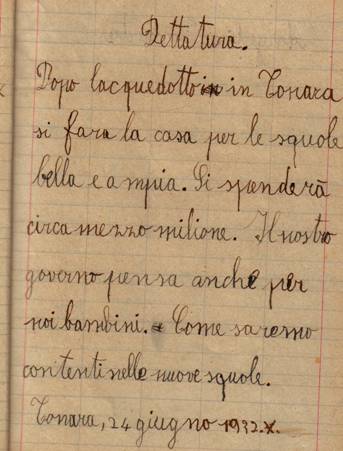 Dettatura.
Dopo lacquedotto in in Tonara
si fara la casa per le squole
bella e ampia. Si spenderà
circa mezzo milione. Il nostro
governo pensa anche per
noi bambini. Come saremo
contenti nelle nuove squole.
Tonara, 24 giugno 1932.X.